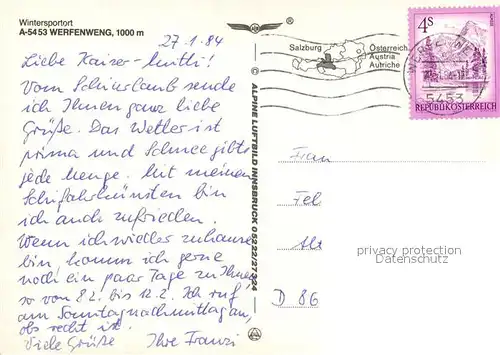 Wintersportort
A-5453 WERFENWENG, 1000 m
27.1.84
Liebe Kaiser-Mutti!
Vom Schiurlaub sende
ich Ihnen ganz liebe
Grüße. Das Wetter ist
prima und Schnee gibts
jede Menge. Mit meinen
Schifahrkünsten bin
ich auch zufrieden.
Wenn ich wieder zuhause
bin, komm ich gerne
noch ein paar Tage zu Ihnen,
so von 8.2. bis 12.2. Ich ruf
am Sonntagnachmittag an,
obs recht ist.
Viele Grüße Ihre Franzi
© ALPINE LUFTBILD INNSBRUCK 05222/27224
Salzburg
Österreich
Austria
Autriche
4 S
REPUBLIK ÖSTERREICH
5453
Frau
D 86
privacy protection
Datenschutz